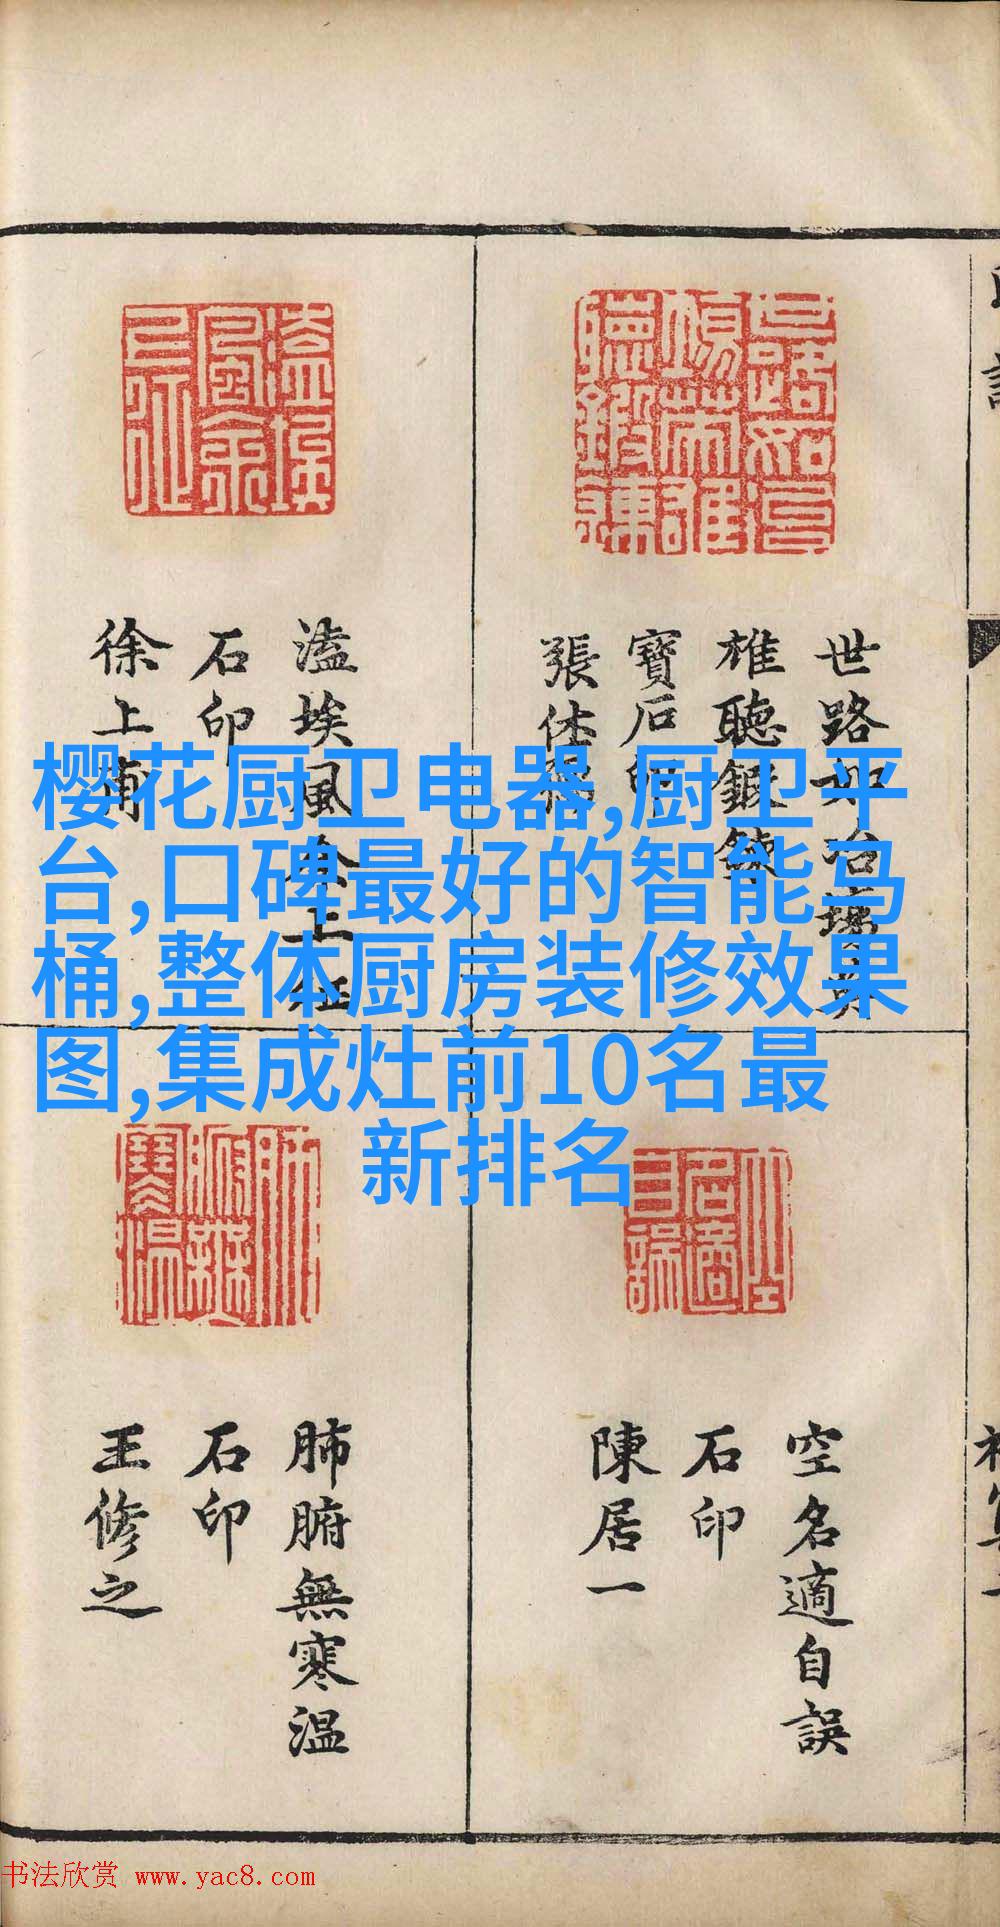 世路如冶場英
雄聽鍛鍊
寶石印
溘埃風余上征
石印
徐上甫
樱花厨卫电器,厨卫平
台,口碑最好的智能马
桶,整体厨房装修效果
图,集成灶前10名最
新排名
空名適自誤
石印
陳居一
肺腑無寒温
石印
王修之
书法欣赏 www.yac8.com